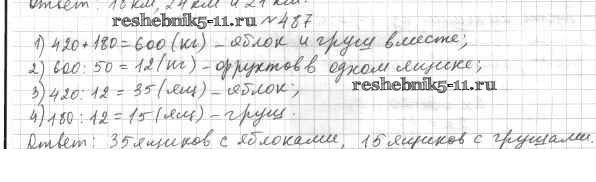 Ответ: 18 км, 24 км и 21 км.
reshebnik5-11.ru №487
1) 420+180=600(кг)-яблок и груш вместе;
2) 600:50=12(кг)-фруктов в одном ящике;
3) 420:12=35(ящ)-яблок;
reshebnik5-11.ru
4) 180:12=15(ящ)-груш.
Ответ: 35 ящиков с яблоками, 15 ящиков с грушами.